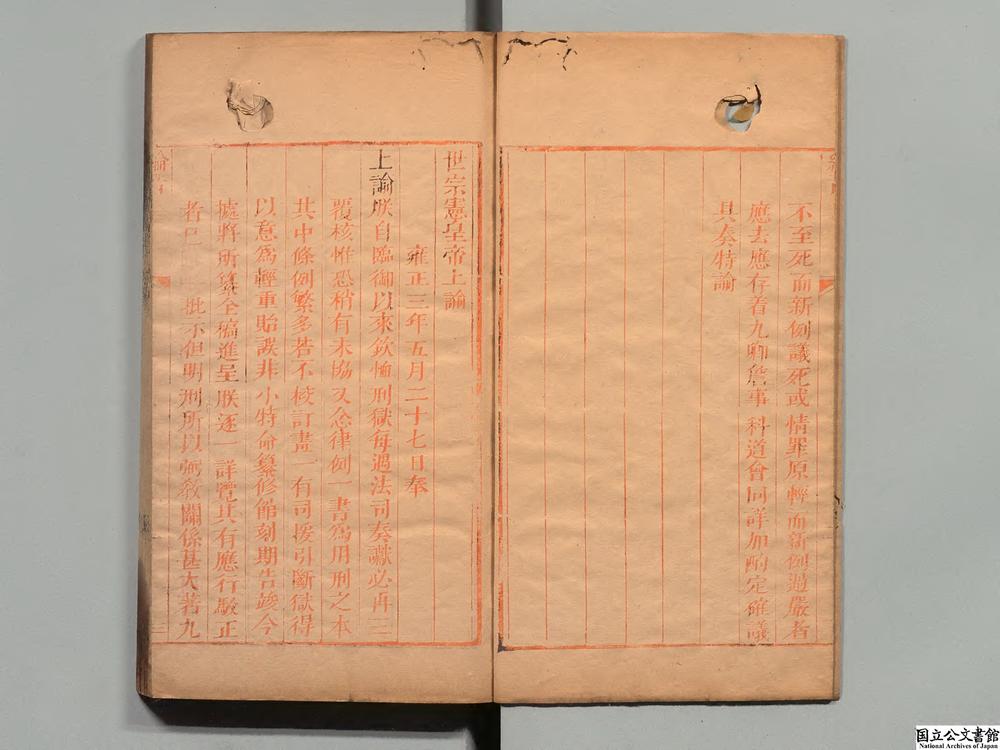 不至死而新例議死或情罪原輕而新例過嚴者
應去應存着九卿詹事科道會同詳加酌定確議
具奏特諭
世宗憲皇帝上諭
雍正三年五月二十七日奉
上諭朕自臨御以來欽恤刑獄每遇法司奏讞必再三
覆核惟恐稍有未協又念律例一書爲用刑之本
其中條例繁多若不校訂畫一有司援引斷獄得
以意爲輕重貽誤非小特命纂修館刻期告竣今
將所纂全稿進呈朕逐一詳覽其有應行駁正
者已批示但明刑所以弼敎關係甚大著九
国立公文書館
National Archives of Japan